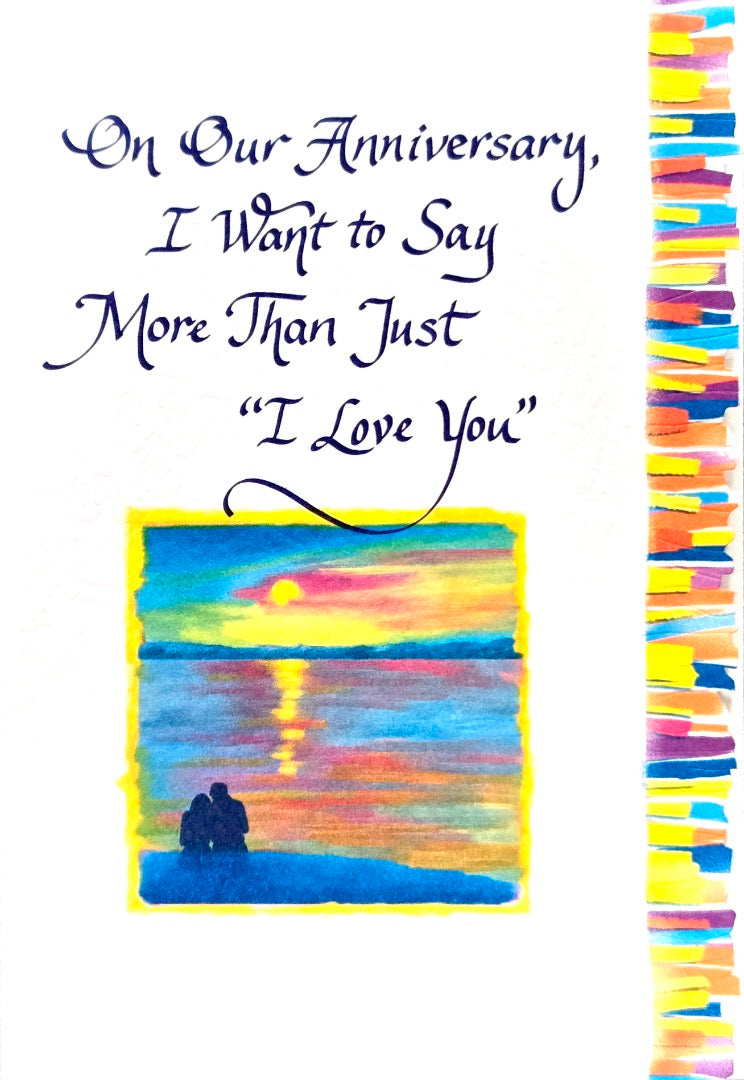 On Our Anniversary,
I Want to Say
More Than Just
“I Love You”